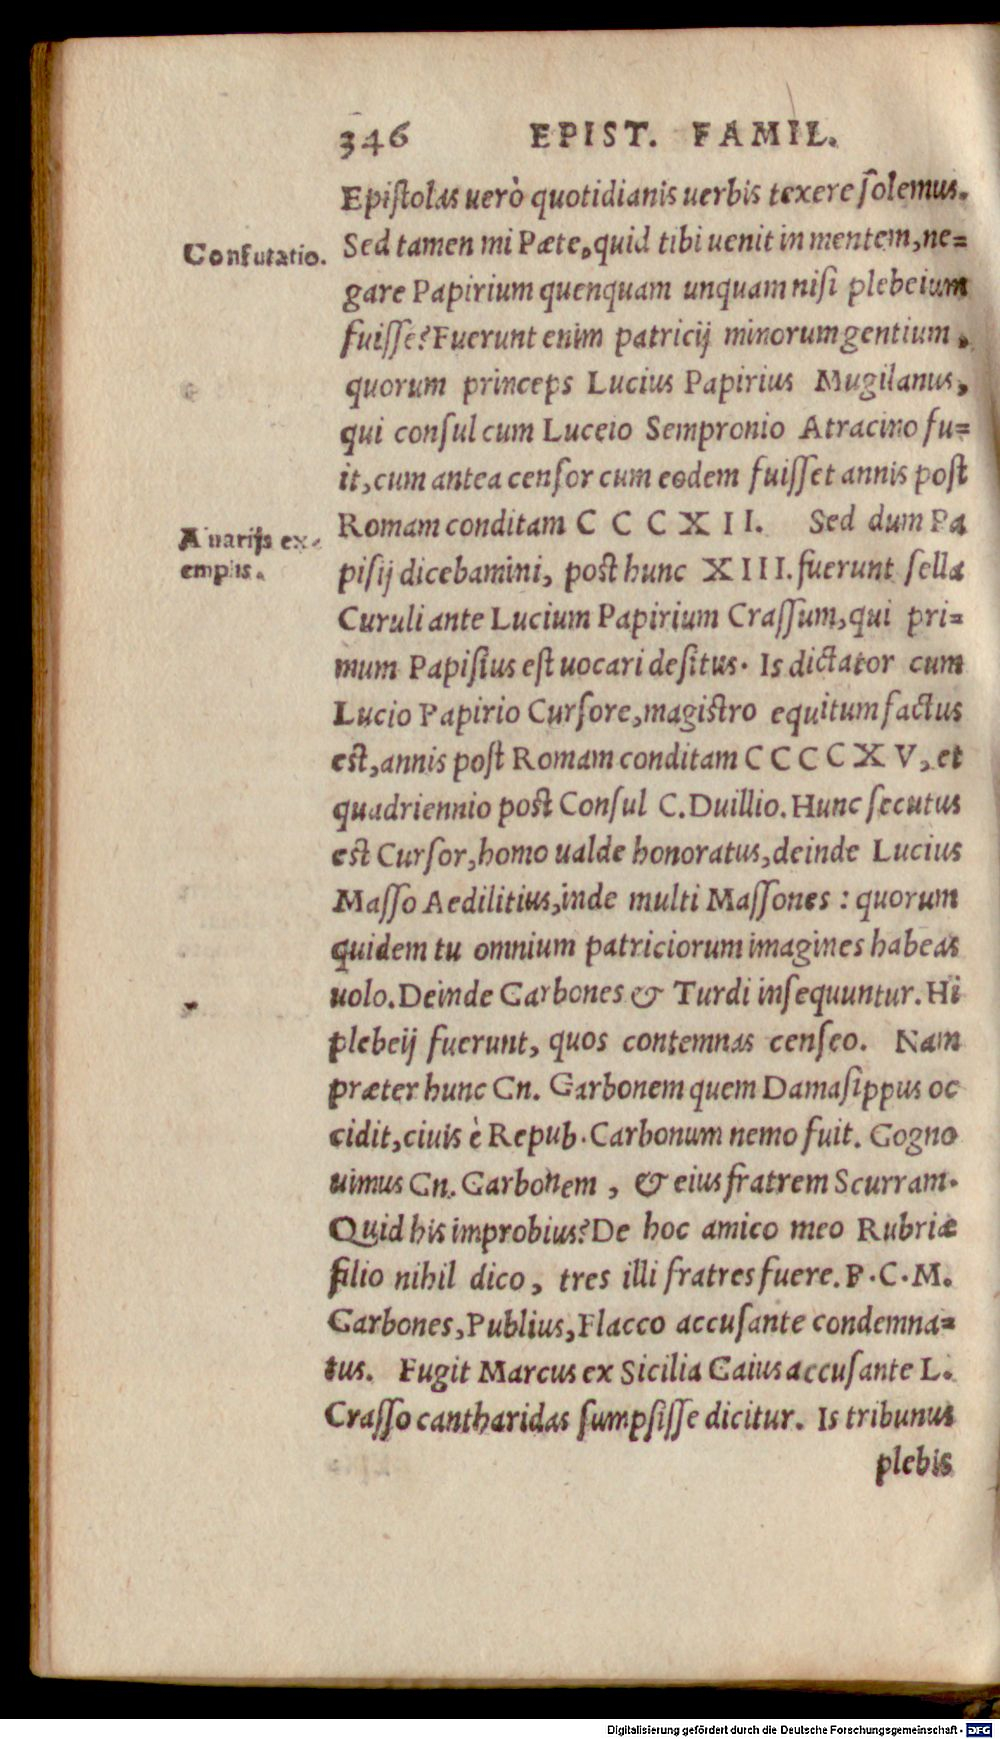 346 EPIST. FAMIL.
Epistolas uerò quotidianis uerbis texere solemus.
Confutatio.
Sed tamen mi Pæte, quid tibi uenit in mentem, ne=
gare Papirium quenquam unquam nisi plebeium
fuisse? Fuerunt enim patricij minorum gentium,
quorum princeps Lucius Papirius Mugilanus,
qui consul cum Luceio Sempronio Atracino fu=
it, cum antea censor cum eodem fuisset annis post
Romam conditam C C C X I I. Sed dum Pa
A uarijs ex-
emplis.
pisij dicebamini, post hunc X I I I. fuerunt sella
Curuli ante Lucium Papirium Crassum, qui pri=
mum Papisius est uocari desitus. Is dictator cum
Lucio Papirio Cursore, magistro equitum factus
est, annis post Romam conditam C C C C X V, et
quadriennio post Consul C. Duillio. Hunc secutus
est Cursor, homo ualde honoratus, deinde Lucius
Masso Aedilitius, inde multi Massones : quorum
quidem tu omnium patriciorum imagines habeas
uolo. Deinde Carbones & Turdi insequuntur. Hi
plebeij fuerunt, quos contemnas censeo. Nam
præter hunc Cn. Carbonem quem Damasippus oc
cidit, ciuis è Repub. Carbonum nemo fuit. Cogno
uimus Cn. Carbonem, & eius fratrem Scurram.
Quid his improbius? De hoc amico meo Rubriæ
filio nihil dico, tres illi fratres fuere. P. C. M.
Carbones, Publius, Flacco accusante condemna=
tus. Fugit Marcus ex Sicilia Gaius accusante L.
Crasso cantharidas sumpsisse dicitur. Is tribunus
plebis
Digitalisierung gefördert durch die Deutsche Forschungsgemeinschaft - DFG